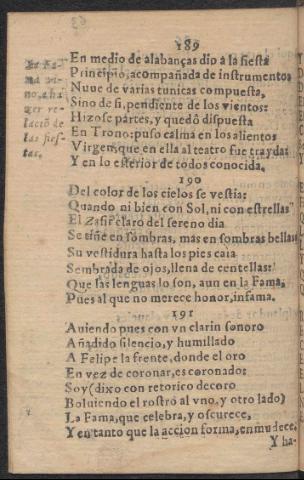 189
La Fa-
ma vi-
no, a ha
zer re-
lactõ de
las fies-
tas.
En medio de alabanças dio â la fiesta
Principio, acompañada de instrumentos
Nuue de varias tunicas compuesta,
Sino de si, pendiente de los vientos:
Hizose partes, y quedô dispuesta
En Trono; puso calma en los alientos
Virgen, que en ella al teatro fue trayda:
Y en lo esterior de todos conocida.
190
Del color de los cielos se vestia:
Quando ni bien con Sol, ni con estrellas
El Zafir claro del sereno dia
Se tiñe en sombras, mas en sombras bellas
Su vestidura hasta los pies caia
Sembrada de ojos, llena de centellas:
Que las lenguas lo son, aun en la Fama,
Pues al que no merece honor, infama.
191
Auiendo pues con vn clarin sonoro
Añadido silencio, y humillado
A Felipe la frente, donde el oro
En vez de coronar, es coronado:
Soy (dixo con retorico decoro
Boluiendo el rostro al vno, y otro lado)
La Fama, que celebra, y oscurece,
Y en tanto que la accion forma, enmudece.
Y ha-